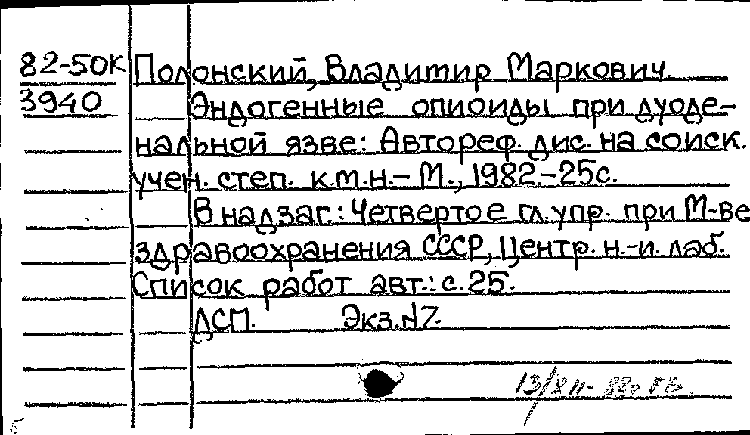 82-50к Полонский, Владимир Маркович.
3940 Эндогенные опиоиды при дуоде-
нальной язве: Автореф. дис. на соиск.
учен. степ. к.м.н. - М., 1982. - 25с.
В надзаг.: Четвертое гл. упр. при М-ве
здравоохранения СССР, Центр. н.-и. лаб.
Список работ авт.: с. 25.
ДСП. Экз. N7.